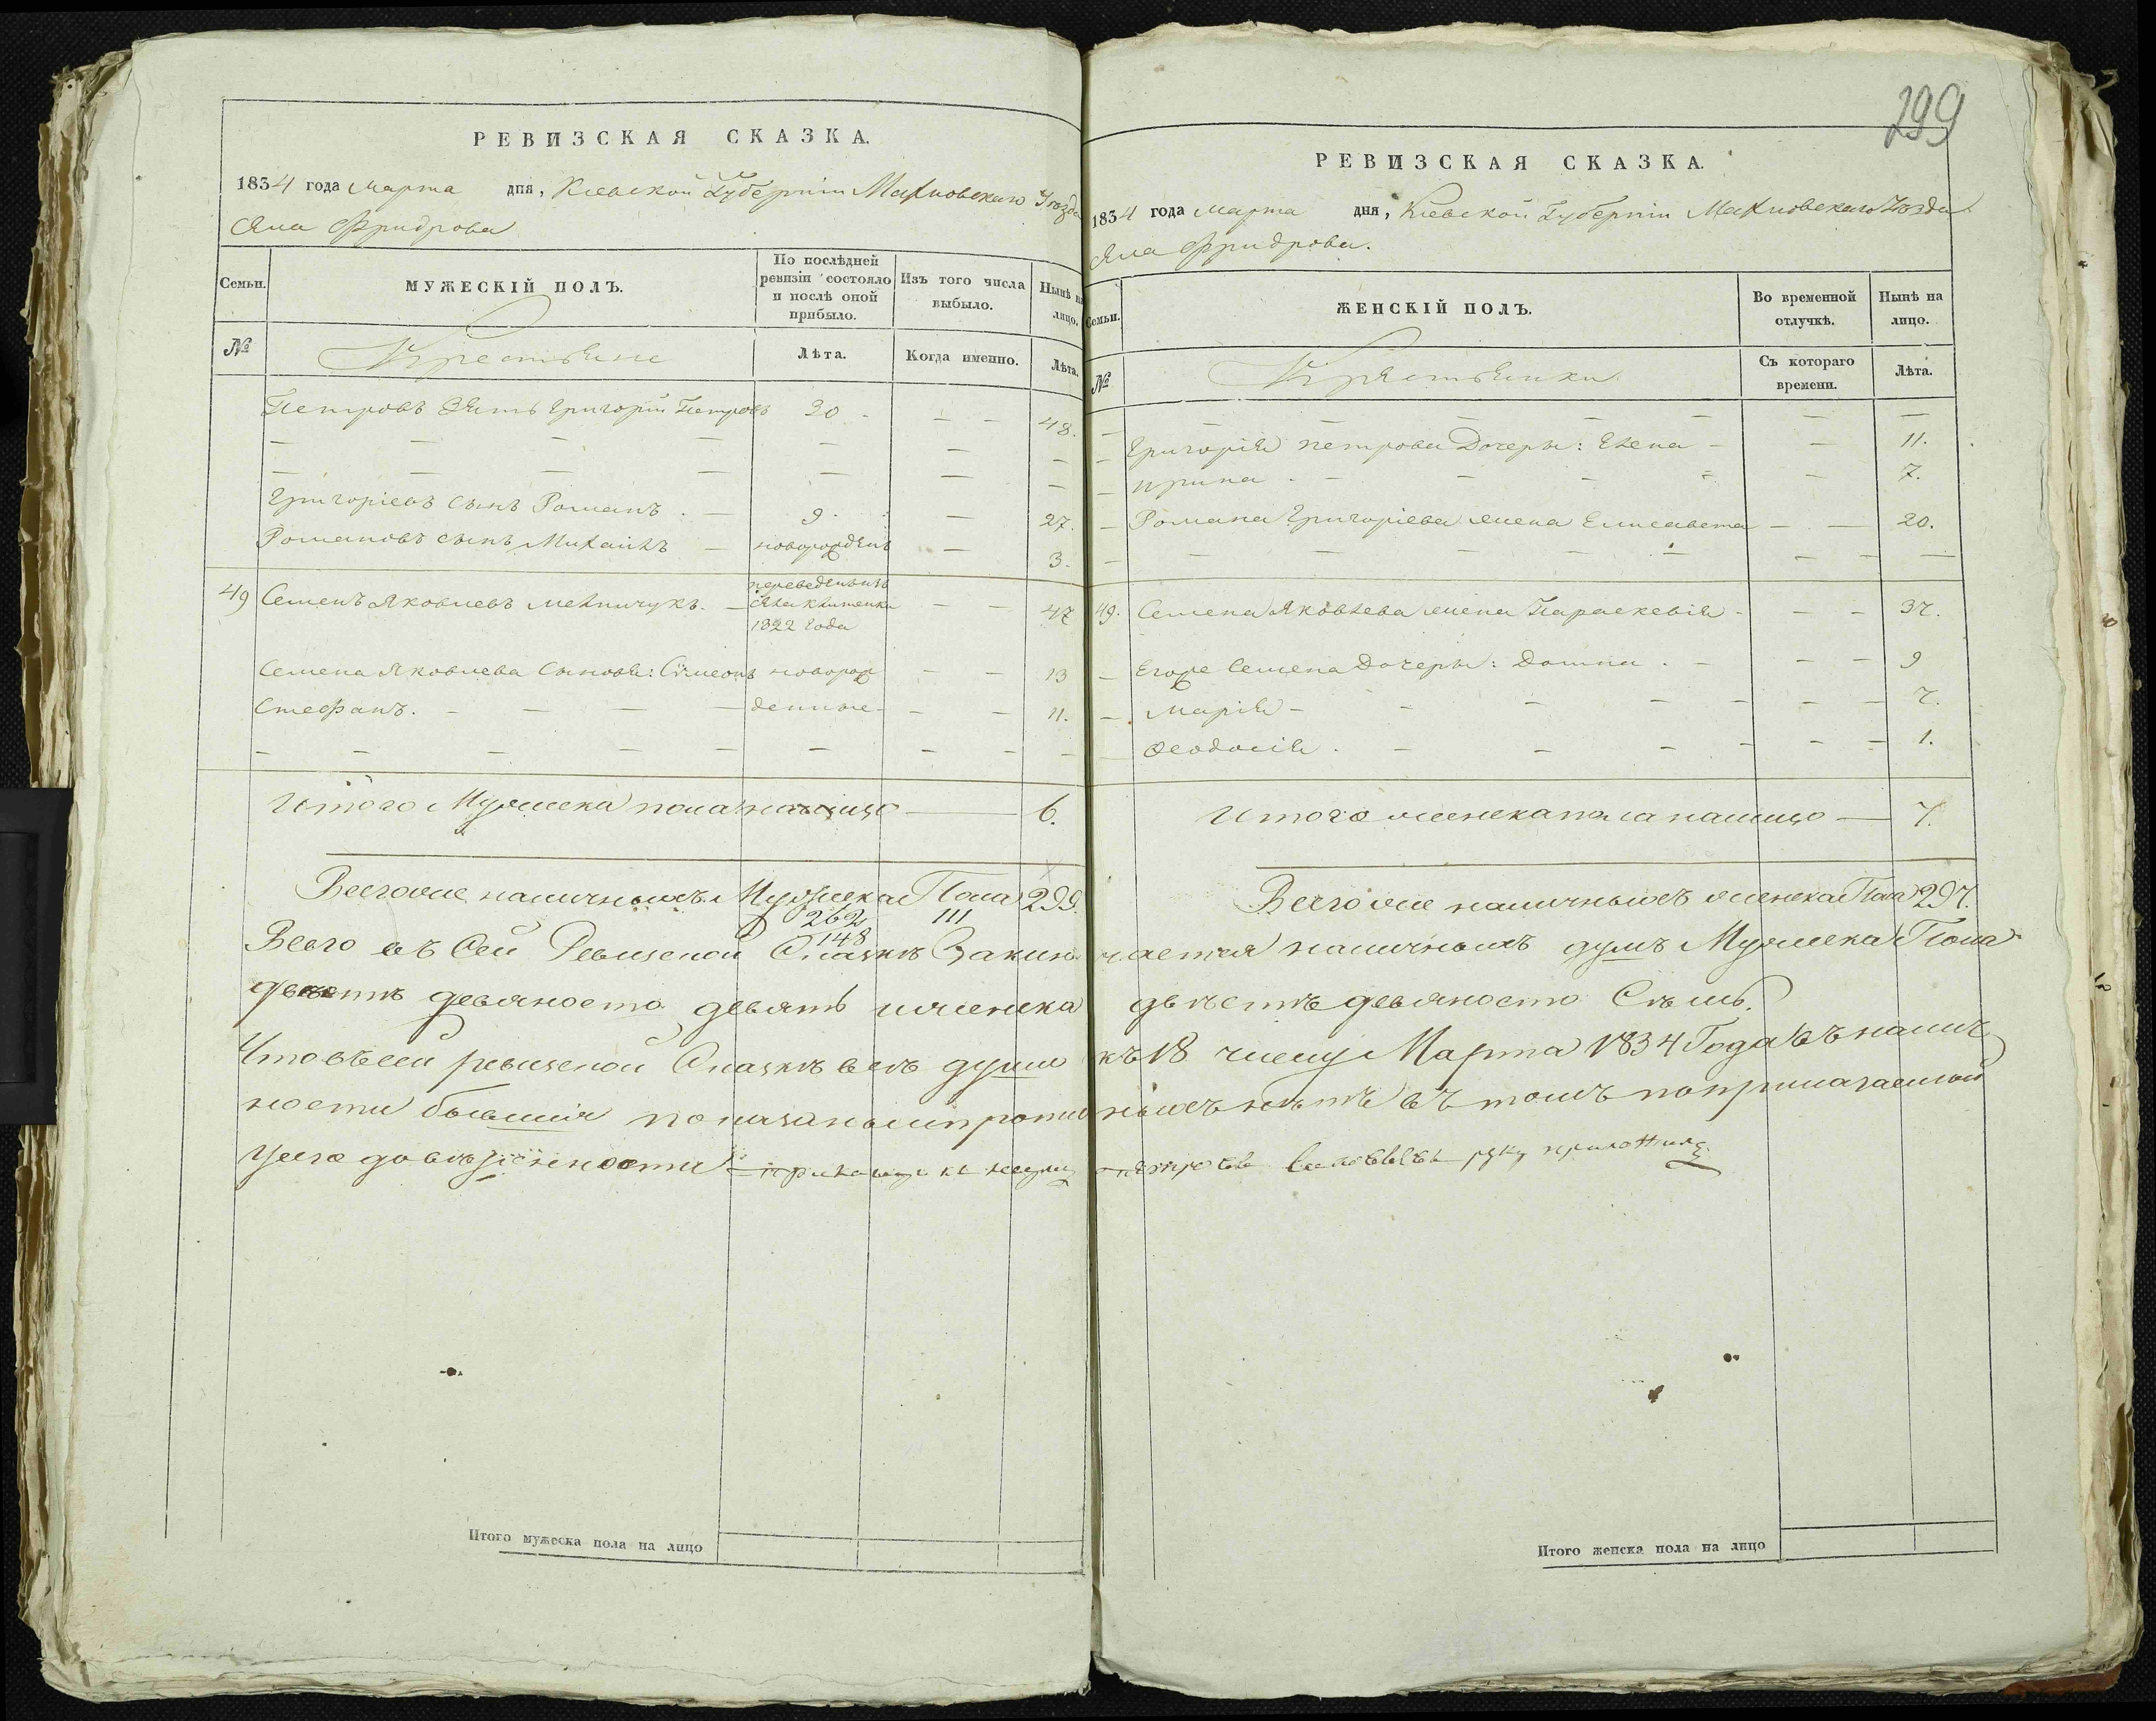 299
РЕВИЗСКАЯ СКАЗКА.
1834 года Марта дня, Кіевской Губерніи Махновскаго Уѣзда
Села Фридрова
Семьи.
МУЖЕСКІЙ ПОЛЪ.
По послѣдней ревизіи состояло и послѣ оной прибыло.
Изъ того числа выбыло.
Нынѣ на лицо.
№
Крестьяне
Лѣта.
Когда именно.
Лѣта.
Петровъ Зять Григорій Петровъ 30 - — — 48.
— — — — — — —
— — — — — — —
Григоріевъ сынъ Романъ . — 9. — 27.
Романовъ сынъ Михаилъ — новорожденъ — 3.
49 Семенъ Яковлевъ Мельничукъ. — переведенъ изъ — — 47
села
1822 Года
Семена Яковлева Сыновья: Сѵмеонъ новорож — — 13
Стефанъ. — — — — денные — — 11.
— — — — — — — — —
Итого Мужеска пола налицо — 6.
Всего же наличныхъ Мужеска Пола 299.
262 111
148
РЕВИЗСКАЯ СКАЗКА.
1834 года Марта дня, Кіевской Губерніи Махновскаго Уѣзда
Села Фридрова.
Семьи.
ЖЕНСКІЙ ПОЛЪ.
Во временной отлучкѣ.
Нынѣ на лицо.
№
Крестьянки
Съ котораго времени.
Лѣта.
— — — — — —
— Григорія Петрова Дочеры: Елена — — 11.
— Ирина . — — — — — 7.
— Романа Григоріева жена Елисавета — — 20.
— — — — — — — — —
49. Семена Яковлева жена Параскевія — — — 37.
— Егоже Семена Дочеры: Домна . — — — 9
— Марія — — — — — — — 7.
— Ѳеодосія . — — — — — — 1.
Итого женска пола налицо — 7.
Всего же наличныхъ женска Пола 297.
Всего въ Сей Ревизской Сказкѣ Заключается наличныхъ душъ Мужеска Пола
двѣстѣ девяносто девять и женска двѣстѣ девяносто Семь.
Что въ сей ревизской Сказкѣ всѣ души къ 18 числу Марта 1834 Года въ налич
ности бывшія показаны и ныхъ нѣтъ въ томъ по
руку приложилъ